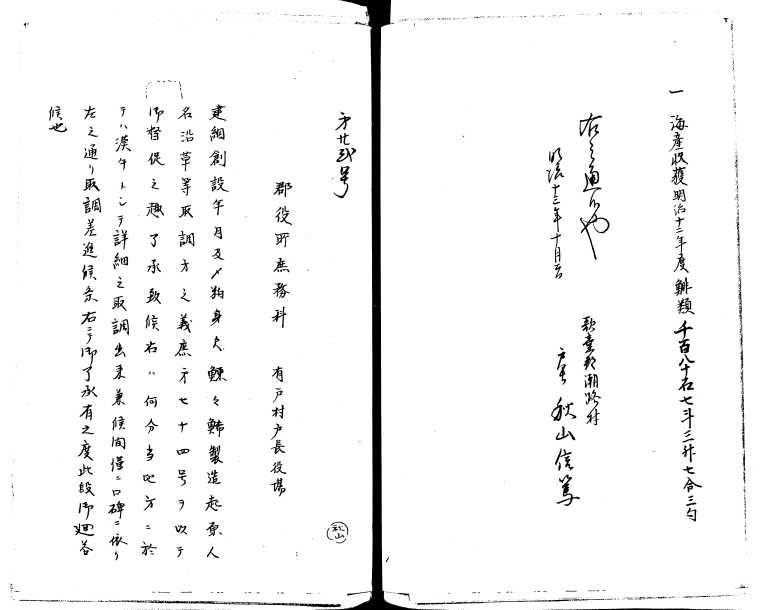 一 海産収獲明治十二年度鯡類千百八十石七斗三升七合三勺
右之通候也
明治十三年十月
歌棄郡潮路村
戸長 秋山信篤
才廿弐号
郡役所庶務科 有戸村戸長役場
建網創設年月及〆粕身欠鰊々鯑製造起原人
名沿革等取調方之義庶才七十四号ヲ以テ
御督促之趣了承致候右ハ何分当地方ニ於
テハ漠乎トシテ詳細之取調出来兼候間僅ニ口碑ニ依リ
左之通リ取調差進候条右ニテ御了承有之度此段御廻答
候也
秋山